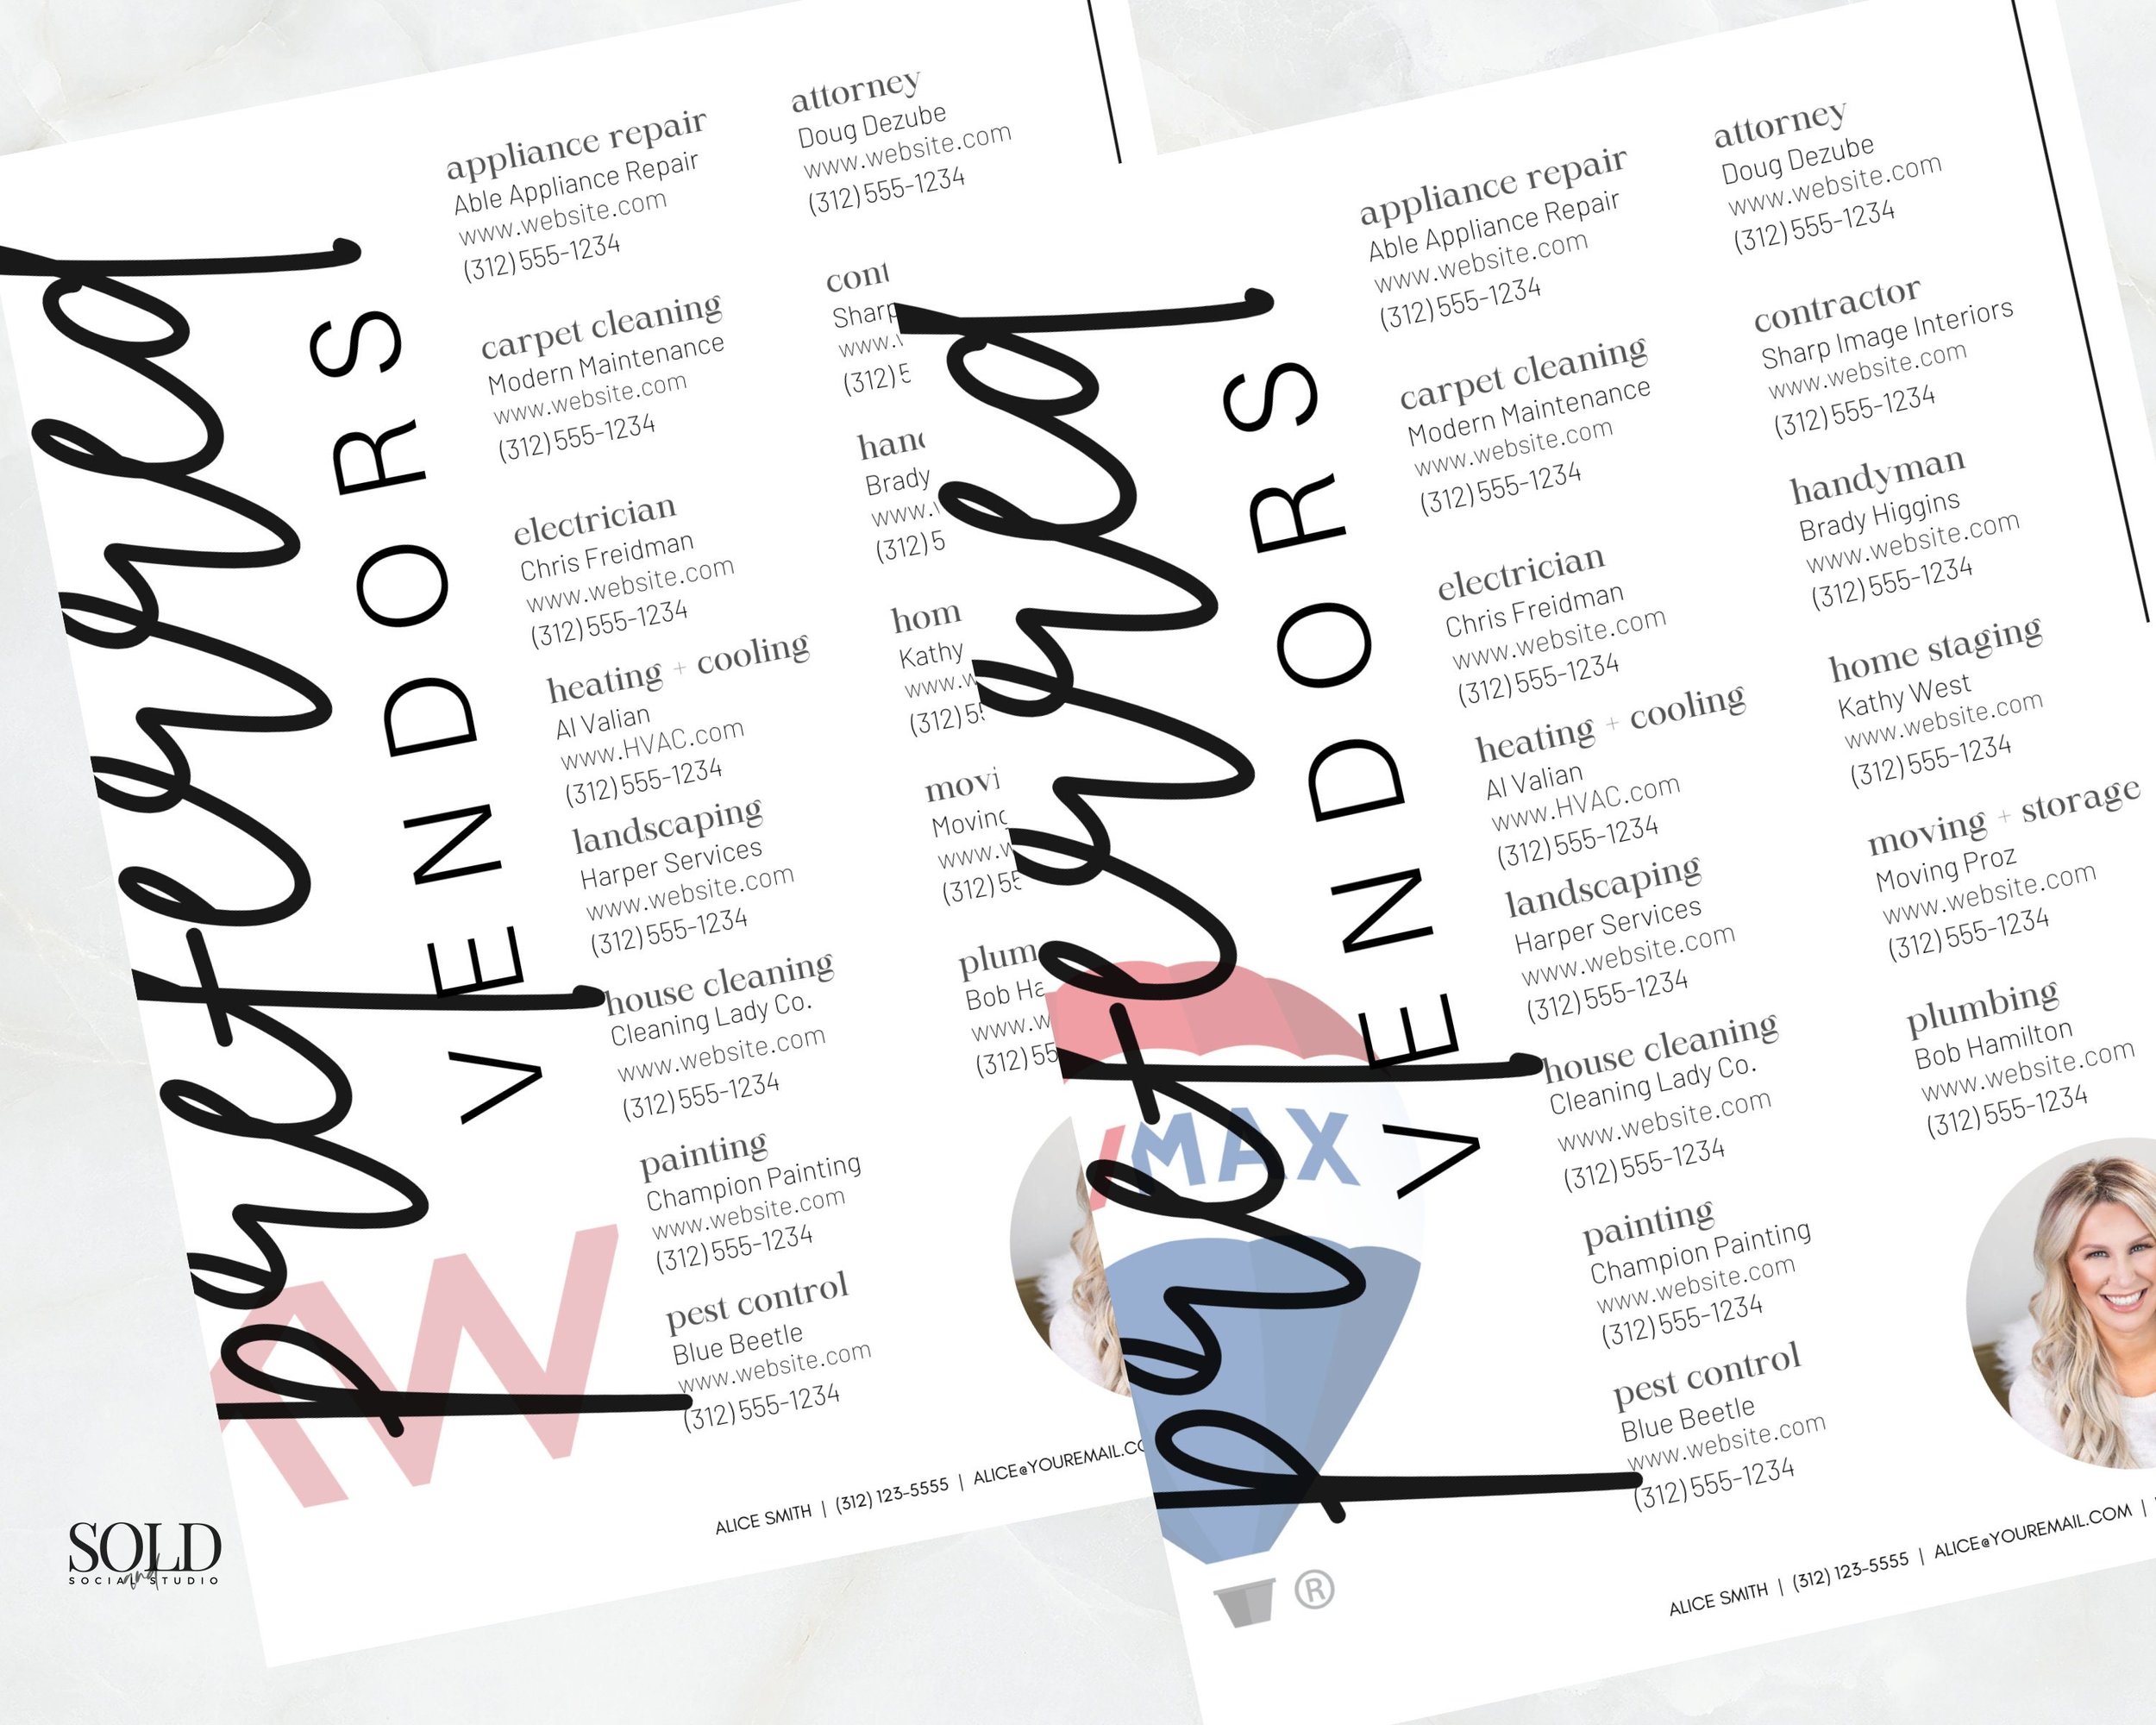 preferred
VENDORS
appliance repair
Able Appliance Repair
www.website.com
(312)555-1234
carpet cleaning
Modern Maintenance
www.website.com
(312)555-1234
electrician
Chris Freidman
www.website.com
(312)555-1234
heating + cooling
Al Valian
www.HVAC.com
(312)555-1234
landscaping
Harper Services
www.website.com
(312)555-1234
house cleaning
Cleaning Lady Co.
www.website.com
(312)555-1234
painting
Champion Painting
www.website.com
(312)555-1234
pest control
Blue Beetle
www.website.com
(312)555-1234
attorney
Doug Dezube
www.website.com
(312)555-1234
cont
Sharp
www.
(312)5
hand
Brady
www.
(312)5
hom
Kathy
www.w
(312)55
movi
Moving
www.w
(312)55
plum
Bob Ha
www.w
(312)55
KW
ALICE SMITH | (312) 123-5555 | ALICE@YOUREMAIL.CO
preferred
VENDORS
appliance repair
Able Appliance Repair
www.website.com
(312)555-1234
carpet cleaning
Modern Maintenance
www.website.com
(312)555-1234
electrician
Chris Freidman
www.website.com
(312)555-1234
heating + cooling
Al Valian
www.HVAC.com
(312)555-1234
landscaping
Harper Services
www.website.com
(312)555-1234
house cleaning
Cleaning Lady Co.
www.website.com
(312)555-1234
painting
Champion Painting
www.website.com
(312)555-1234
pest control
Blue Beetle
www.website.com
(312)555-1234
attorney
Doug Dezube
www.website.com
(312)555-1234
contractor
Sharp Image Interiors
www.website.com
(312)555-1234
handyman
Brady Higgins
www.website.com
(312)555-1234
home staging
Kathy West
www.website.com
(312)555-1234
moving + storage
Moving Proz
www.website.com
(312)555-1234
plumbing
Bob Hamilton
www.website.com
(312)555-1234
/MAX
®
ALICE SMITH | (312) 123-5555 | ALICE@YOUREMAIL.COM |
SOLD
and
SOCIAL STUDIO